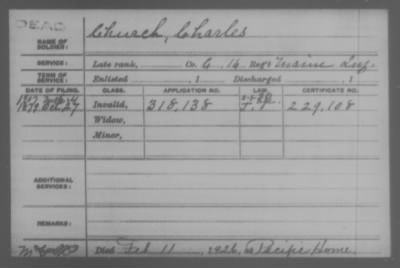 DEAD
NAME OF SOLDIER: Church, Charles
SERVICE: Late rank, Co. C, 16 Reg't Maine Inf.
TERM OF SERVICE: Enlisted , 1 Discharged , 1
DATE OF FILING. CLASS. APPLICATION NO. LAW. CERTIFICATE NO.
1879 Oct. 27 Invalid, 318,138 229,108
Widow,
Minor,
ADDITIONAL SERVICES:
REMARKS:
Died Feb 11, 1926, at Pacific Home